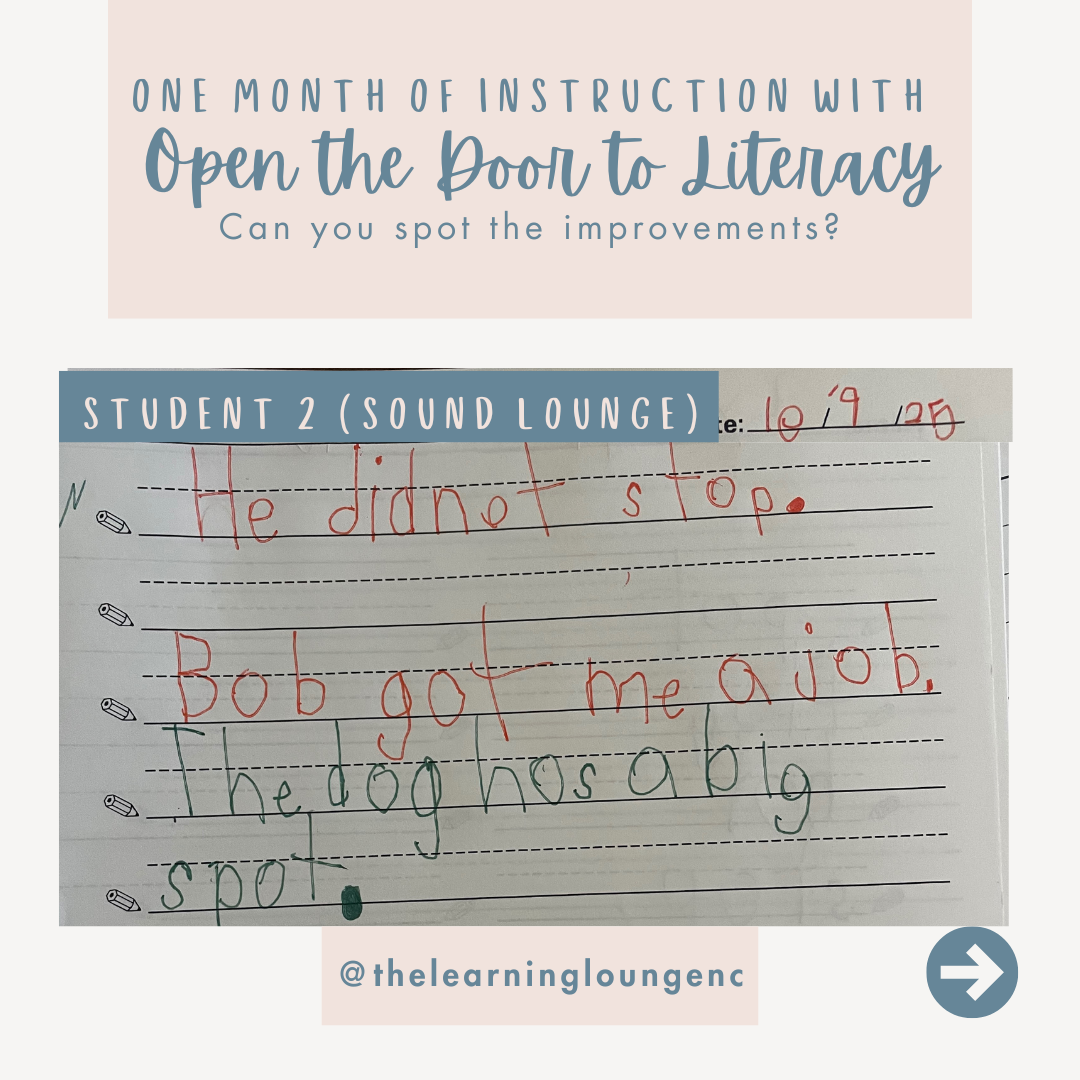 ONE MONTH OF INSTRUCTION WITH
Open the Door to Literacy
Can you spot the improvements?
STUDENT 2 (SOUND LOUNGE)
te: 10/9/25
N
He didnot stop.
Bob got me a job.
The dog has a big
spot.
@thelearningloungenc